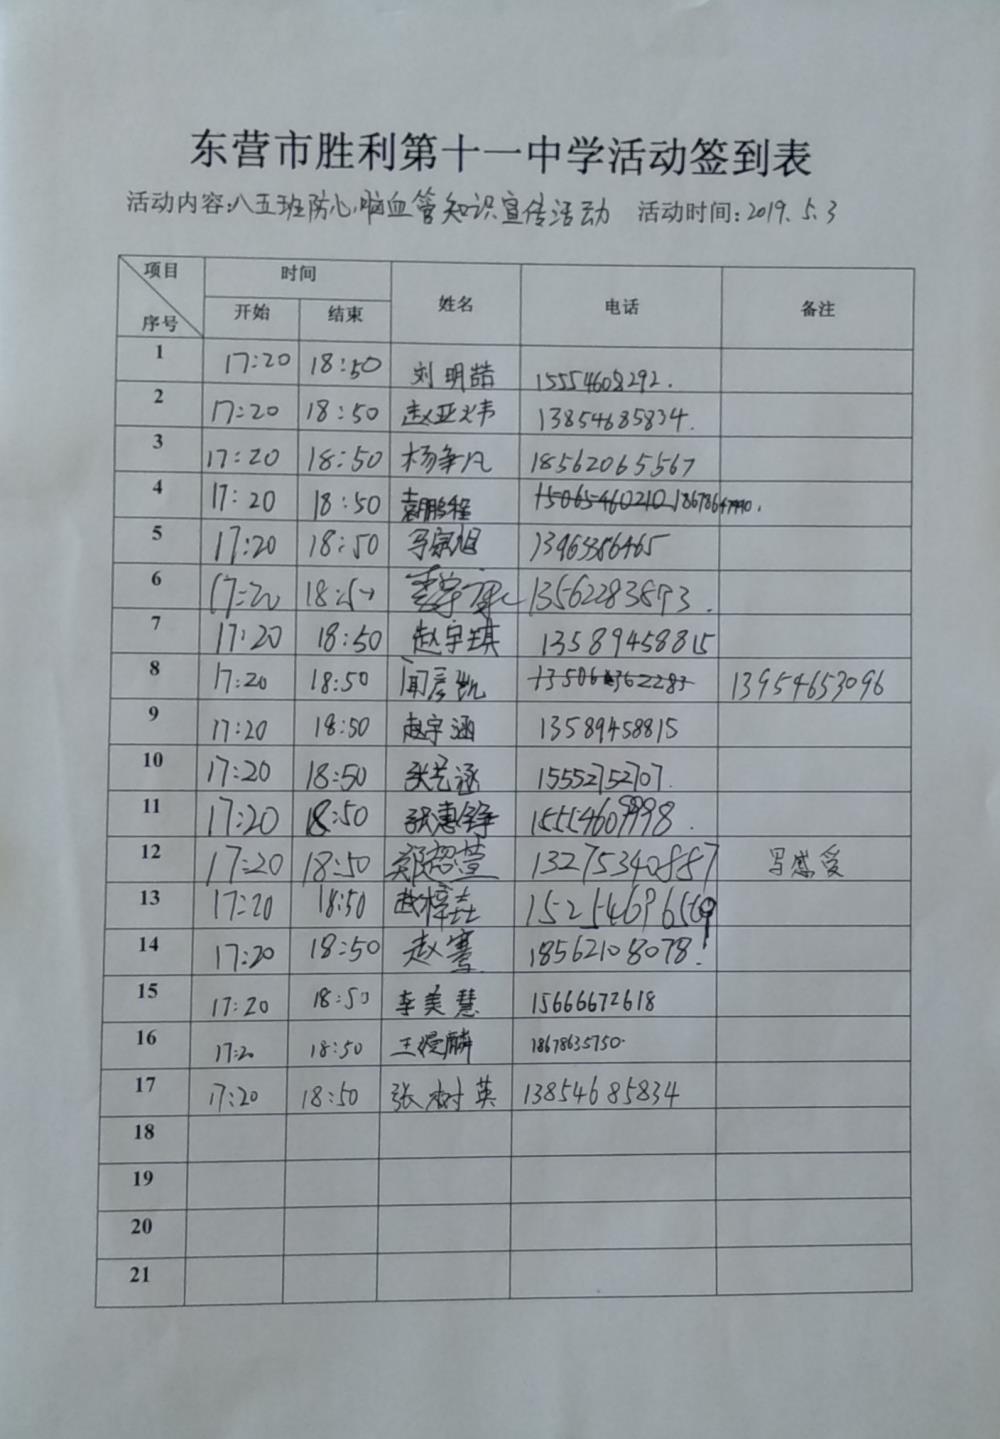 东营市胜利第十一中学活动签到表
活动内容:八五班防心脑血管知识宣传活动 活动时间:2019.5.3
项目 时间 姓名 电话 备注
序号 开始 结束
1 17:20 18:50 刘明喆 15554608292.
2 17:20 18:50 赵亚炜 13854685834.
3 17:20 18:50 杨争凡 18562065567
4 17:20 18:50 袁鹏程 15065460210
5 17:20 18:50 马宗旭
6 17:20 18:50 13562283873.
7 17:20 18:50 赵宇琪 13589458815
8 17:20 18:50 闻彦凯 13954653096
9 17:20 18:50 赵宇涵 13589458815
10 17:20 18:50 张艺涵 15552752707.
11 17:20 18:50 张惠铮 15554609998.
12 17:20 18:50 郑韶萱 13275340887 写感受
13 17:20 18:50 赵梓垚 15254696569
14 17:20 18:50 赵骞 18562108078.
15 17:20 18:50 李美慧 15666672618
16 17:20 18:50 18678635750.
17 17:20 18:50 张树英 13854685834
18
19
20
21